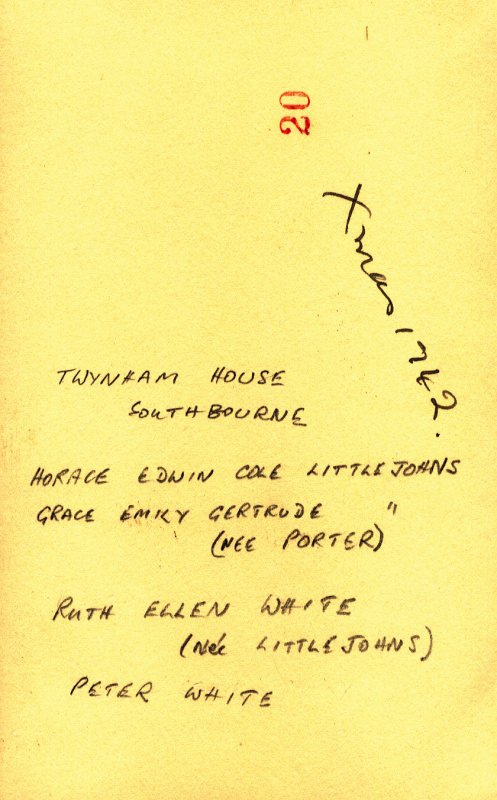 20
Xmas 1942.
TWYNHAM HOUSE
SOUTHBOURNE
HORACE EDWIN COLE LITTLEJOHNS
GRACE EMILY GERTRUDE "
(NEE PORTER)
RUTH ELLEN WHITE
(Née LITTLEJOHNS)
PETER WHITE